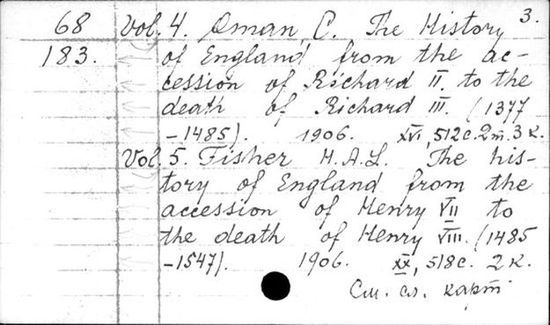 3.
68 Vol. 4. Oman, C. The History
183. of England from the ac-
cession of Richard II. to the
death of Richard III. (1377
-1485). 1906. XVI, 512 с. 2 т. 3 к.
Vol. 5. Fisher H.A.L. The his-
tory of England from the
accession of Henry VII to
the death of Henry VIII. (1485
-1547). 1906. XX, 518 с. 2 к.
См. сл. карт